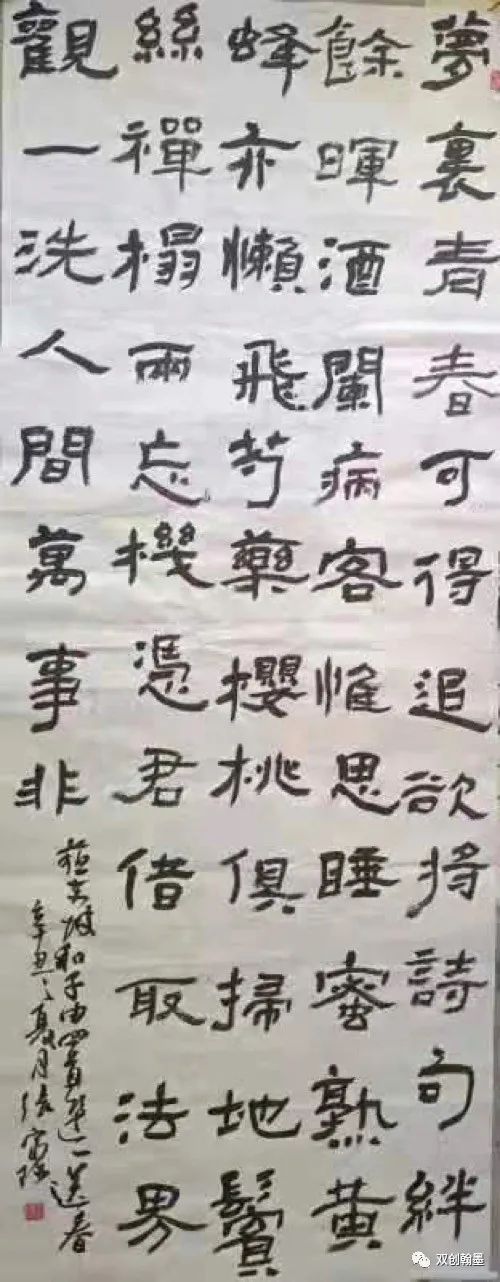 夢裏青春可得追欲将詩句絆
餘暉酒闌病客惟思睡蜜熟黄
蜂亦懶飛芍藥櫻桃俱掃地鬢
絲禪榻兩忘機憑君借取法界
觀一洗人間萬事非
蘇东坡和子由四首選一送春
辛丑之夏月張
双创翰墨